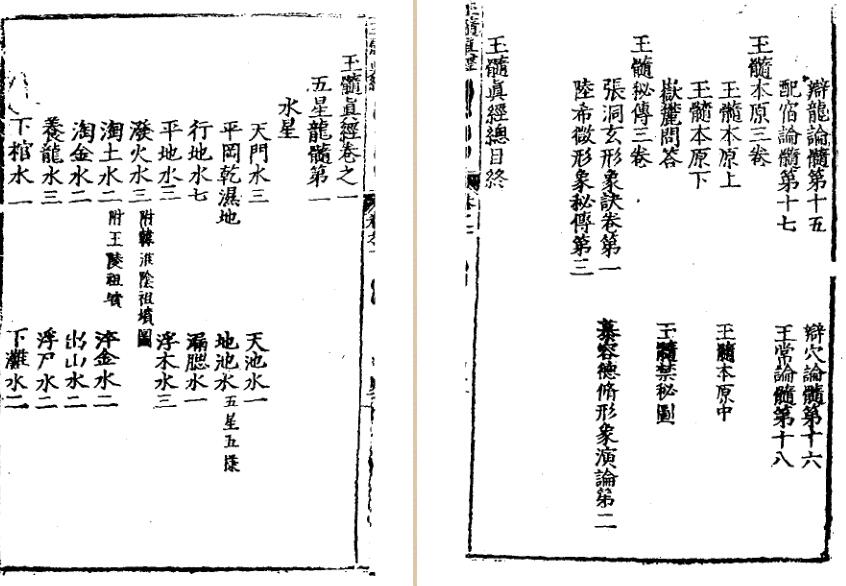 辯龍論髓第十五　辯穴論髓第十六
配宿論髓第十七　王常論髓第十八
玉髓本原三卷
玉髓本原上　玉髓本原中
玉髓本原下
嶽麓問答　玉髓禁秘圖
玉髓秘傳三卷
張洞玄形象訣卷第一　慕容德脩形象演論第二
陸希微形象秘傳第三
玉髓眞經總目終
玉髓眞經卷之一
五星龍髓第一
水星
天門水三　天池水一
平岡乾濕地　地池水五星五㨾
行地水七　漏腮水一
平地水三　浮木水三
潑火水三附韓淮陰祖墳圖
淘土水二附王陵祖墳　淬金水二
淘金水二　出山水二
養龍水三　浮尸水二
下棺水一　下灘水二